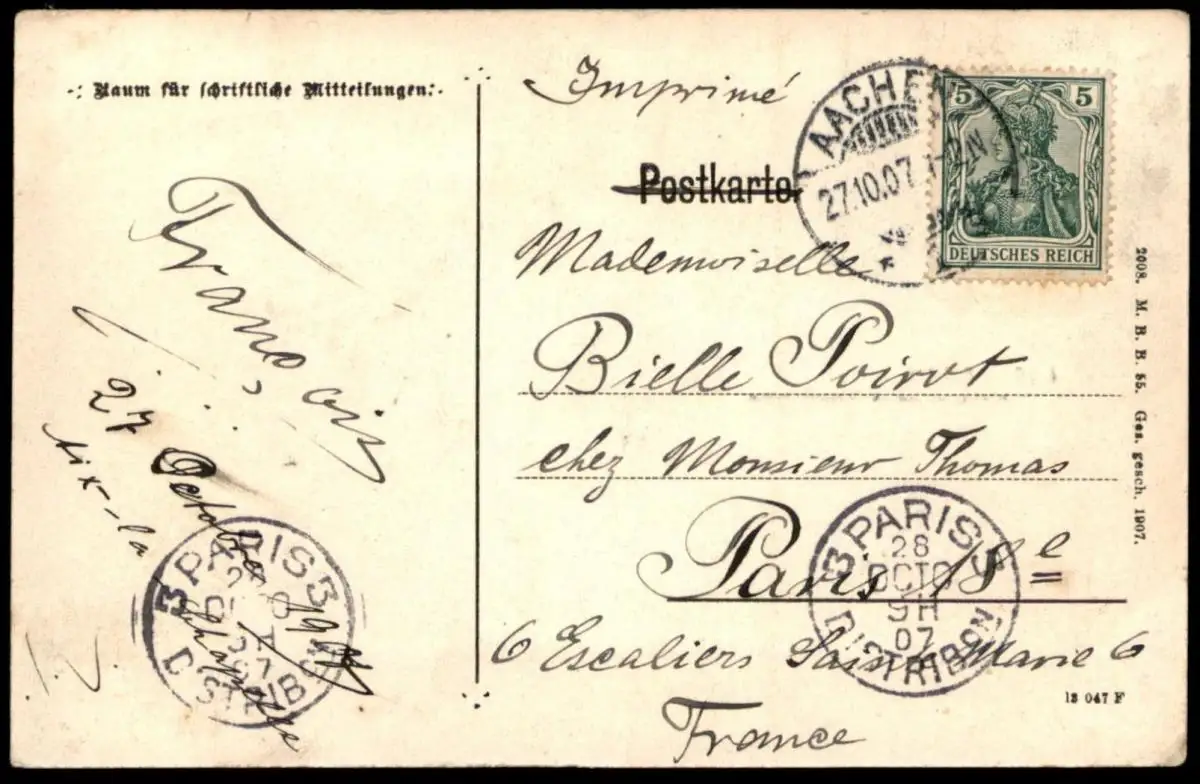 Raum für schriftliche Mitteilungen:
François
27 October 1907
Aix-la Chapelle
Imprimé
Postkarte.
AACHEN
27.10.07. 1-2N
5 5
DEUTSCHES REICH
Mademoiselle
Bielle Poirot
chez Monsieur Thomas
Paris 18e
6 Escaliers Sainte Marie 6
France
3 PARIS 3
28
OCTO
5H
07
DISTRIBON
3 PARIS 3
DISTRIBON
2008. M. B. B. 55. Ges. gesch. 1907.
13 047 F